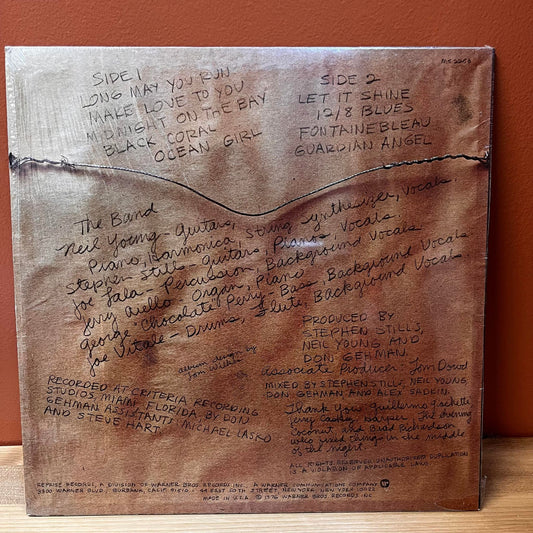 MS 2253
SIDE 1
LONG MAY YOU RUN
MAKE LOVE TO YOU
MIDNIGHT ON THE BAY
BLACK CORAL
OCEAN GIRL
SIDE 2
LET IT SHINE
12/8 BLUES
FONTAINEBLEAU
GUARDIAN ANGEL
The Band
Neil Young - Guitars,
Piano, Harmonica String synthesizer, Vocals.
Stephen Stills - Guitars, Piano, Vocals.
Joe Lala - Percussion, Background Vocals
Jerry Aiello - Organ, Piano
George "Chocolate" Perry - Bass, Background Vocals.
Joe Vitale - Drums, Flute, Background Vocals
album design by
Tom Wilkes
PRODUCED BY
STEPHEN STILLS,
NEIL YOUNG AND
DON GEHMAN.
Associate Producer: Tom Dowd
MIXED BY STEPHEN STILLS, NEIL YOUNG,
DON GEHMAN AND ALEX SADKIN.
RECORDED AT CRITERIA RECORDING
STUDIOS, MIAMI, FLORIDA. BY DON
GEHMAN ASSISTANTS: MICHAEL LASKO
AND STEVE HART.
Thank You: Guillermo Giachetti
Jerry Caskey, Harvier, The
Coconut and Brad Richardson
who fixed things in the middle
of the night.
ALL RIGHTS RESERVED. UNAUTHORIZED DUPLICATION
IS A VIOLATION OF APPLICABLE LAWS.
REPRISE RECORDS, A DIVISION OF WARNER BROS. RECORDS INC. A WARNER COMMUNICATIONS COMPANY
3300 WARNER BLVD., BURBANK, CALIF. 91510 • 44 EAST 50TH STREET, NEW YORK, NEW YORK 10022
MADE IN U.S.A. © 1976 WARNER BROS. RECORDS INC.